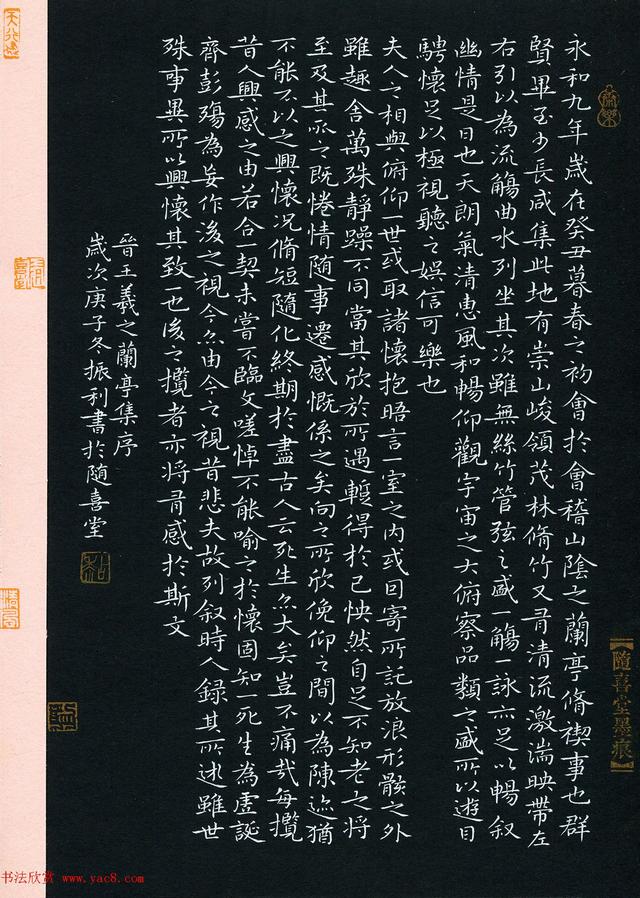 永和九年歲在癸丑暮春之初會於會稽山陰之蘭亭脩禊事也群
賢畢至少長咸集此地有崇山峻領茂林脩竹又有清流激湍映帶左
右引以為流觴曲水列坐其次雖無絲竹管弦之盛一觴一詠亦足以暢叙
幽情是日也天朗氣清惠風和暢仰觀宇宙之大俯察品類之盛所以遊目
騁懷足以極視聽之娛信可樂也
夫人之相與俯仰一世或取諸懷抱晤言一室之内或因寄所託放浪形骸之外
雖趣舍萬殊靜躁不同當其欣於所遇蹔得於己怏然自足不知老之將
至及其所之既惓情隨事遷感慨係之矣向之所欣俛仰之間以為陳迹猶
不能不以之興懷况脩短隨化終期於盡古人云死生亦大矣豈不痛哉每攬
昔人興感之由若合一契未嘗不臨文嗟悼不能喻之於懷固知一死生為虛誕
齊彭殤為妄作後之視今亦由今之視昔悲夫故列叙時人錄其所述雖世
殊事異所以興懷其致一也後之攬者亦将有感於斯文
晉王羲之蘭亭集序
歲次庚子冬振利書於隨喜堂
隨喜堂墨痕
书法欣赏 www.yac8.com